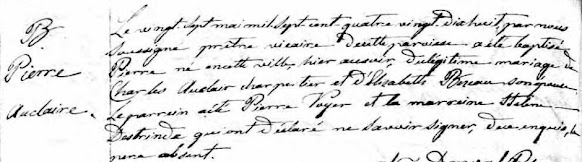 B
Pierre
Auclaire.
Le vingt sept mai mil sept cent quatre vingt dix huit, par nous
soussigné prêtre vicaire de cette paroisse a été baptisé
Pierre né en cette ville, hier au soir, du légitime mariage de
Charles Auclair charpentier et d'Elisabeth Bezeau son épouse.
Le parrein a été Pierre Voyer et la marreine Helene
qui ont déclaré ne savoir signer, de ce enquis, le
pere absent.